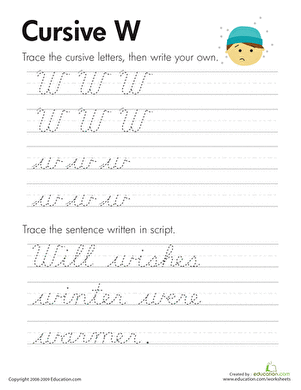 Cursive W
Trace the cursive letters, then write your own.
W W W
W W W
w w w
w w w
Trace the sentence written in script.
Will wishes
winter were
warmer.
Copyright 2008-2009 Education.com
Created by : education.com
www.education.com/worksheets